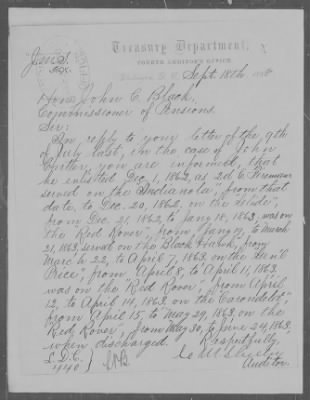 Treasury Department,
FOURTH AUDITOR'S OFFICE,
Sept. 18th,
Hon. John C. Black,
Commissioner of Pensions.
Sir:
In reply to your letter of the 9th
of July last, in the case of John
Butler, you are informed, that
he enlisted Dec. 1, 1862, as 2d Cl Fireman
served on the "Indianola", from that
date, to Dec. 20, 1862, on the "Clyde",
from Dec. 21, 1862, to Jany 18, 1863, was on
the "Red Rover", from Jany 19, to March
21, 1863, served on the Black Hawk, from
March 22, to April 7, 1863, on the "Gen'l
Price", from April 8, to April 11, 1863,
was on the "Red Rover", from April
12, to April 14, 1863, on the "Carondelet",
from April 15, to May 29, 1863, on the
"Red Rover", from May 30, to June 24, 1863,
when discharged. Respectfully,
Auditor.